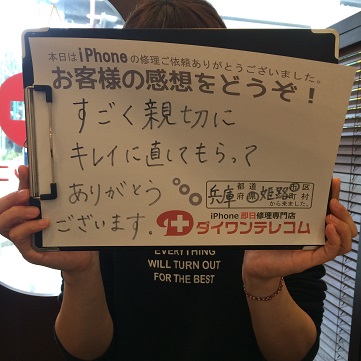 本日はiPhoneの修理ご依頼ありがとうございました。
お客様の感想をどうぞ！
すごく親切に
キレイに直してもらって
ありがとう
ございます。
兵庫 都道府県 姫路 市区町村
から来ました。
iPhone 即日修理専門店
ダイワンテレコム
EVERYTHING
WILL TURN OUT
FOR THE BEST